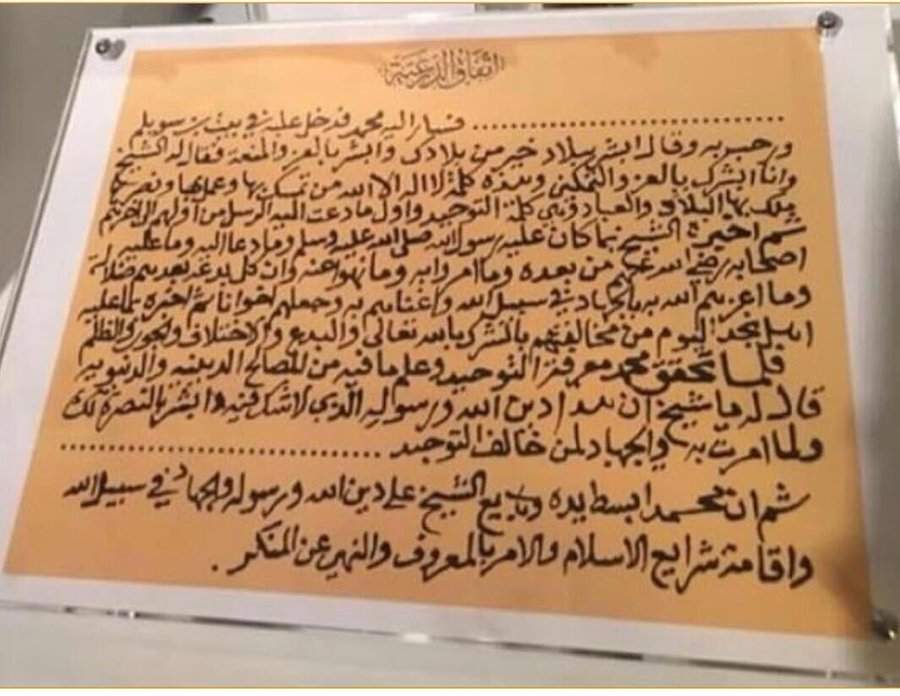 اتفاق الدرعية
.................... فسار اليه محمد فدخل عليه في بيت بن سويلم
ورحب به وقال ابشر ببلاد خير من بلادك وابشر بالعز والمنعة فقال له الشيخ
وانا ابشرك بالعز والتمكين وهذه كلمة لا اله الا الله من تمسك بها وعمل بها ونصرها
ملك بها البلاد والعباد وهي كلمة التوحيد واول ما دعت اليه الرسل من اولهم الى اخرهم
ثم اخبره الشيخ بما كان عليه رسول الله صلى الله عليه وسلم وما دعا اليه وما عليه
اصحابه رضي الله عنهم من بعده وما امروا به وما نهوا عنه وان كل بدعة بعدهم ضلالة
وما اعزهم الله به بالجهاد في سبيل الله واغناهم به وجعلهم اخوانا ثم اخبره بما عليه
اهل نجد اليوم من مخالفتهم بالشرك بالله تعالى والبدع والاختلاف والجور والظلم
فلما تحقق محمد معرفة التوحيد وعلم ما فيه من المصالح الدينيه والدنيويه
قال له يا شيخ ان هذا دين الله ورسوله الذي لا شك فيه وابشر بالنصرة لك
ولما امرت به والجهاد لمن خالف التوحيد ..............................
ثم ان محمد ابسط يده وبايع الشيخ على دين الله ورسوله والجهاد في سبيل الله
واقامة شرايع الاسلام والامر بالمعروف والنهي عن المنكر .